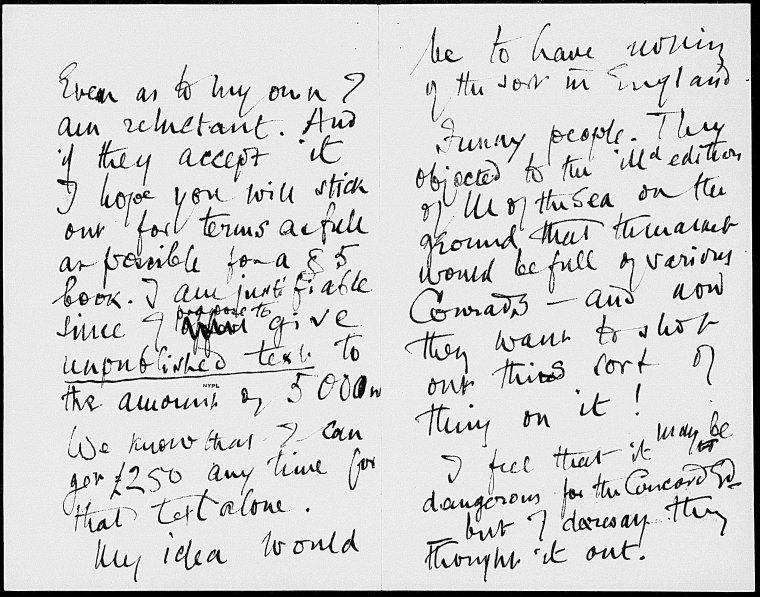 Even as to my own I
am reluctant. And
if they accept it
I hope you will stick
out for terms as full
as possible for a $5
book. I am justifiable
since I propose to give
unpublished text to
the amount of 5000 w
NYPL
We know that I can
get £250 any time for
that text alone.
My idea would
be to have nothing
of the sort in England.
Funny people. They
objected to the illd edition
of M of the Sea on the
ground that the market
would be full of various
Conrads — and now
they want to shot
out this sort of
thing on it!
I feel that it may be
dangerous for the Concord Ed
— but I daresay they
thought it out.